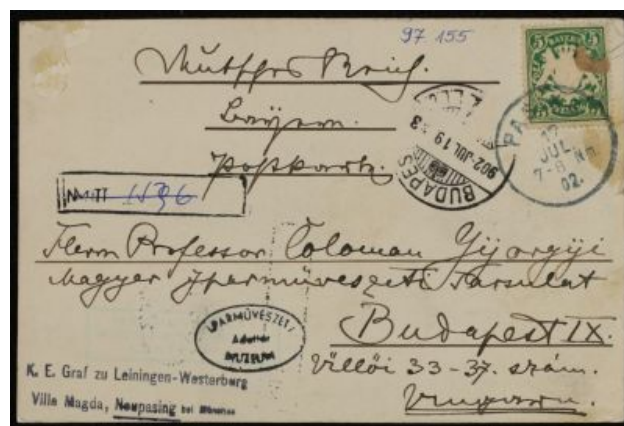 97 155
Deutsches Reich.
Bayern.
Postkarte.
5 BAYERN 5
PAS
17
JUL
7-8 Nm
02.
BUDAPEST
902 JUL 19
Herrn Professor Coloman Györgyi
Magyar Iparművészeti Társulat
Budapest IX.
Üllői 33-37. szám.
Ungarn.
IPARMŰVÉSZETI
Adattár
MUZEUM
K. E. Graf zu Leiningen-Westerburg
Villa Magda, Neupasing bei München